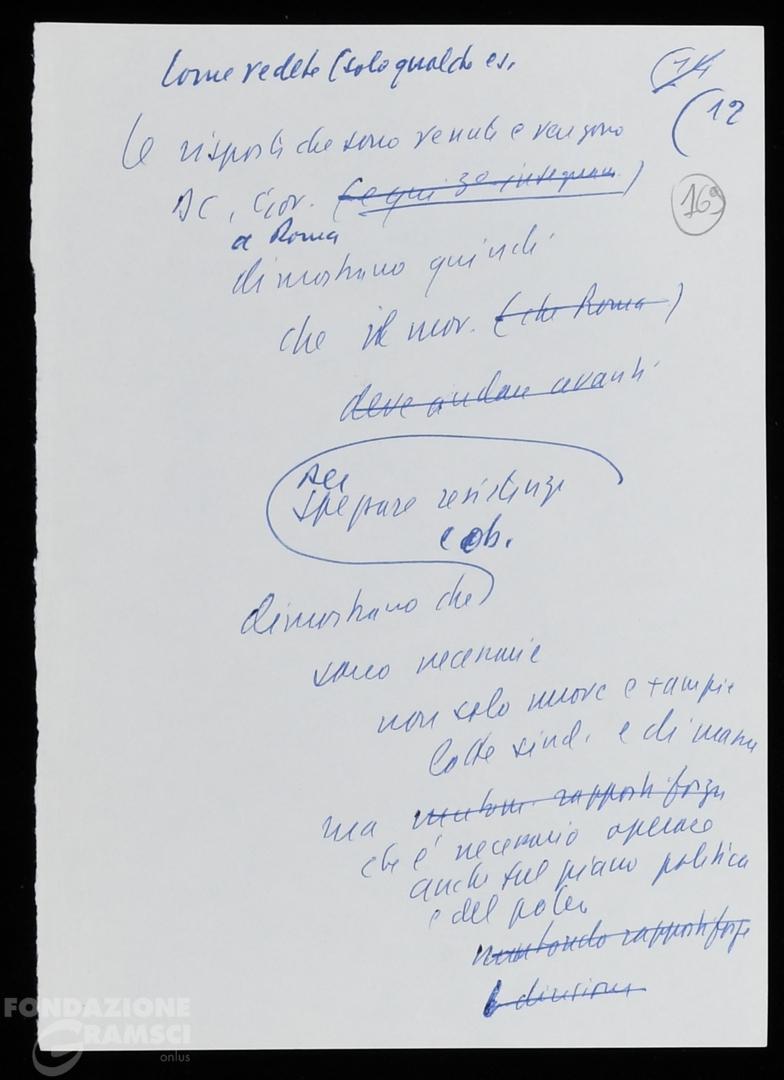 Come vedete (solo qualche es.
(14
(12
le risposte che sono venute e vengono
16a
DC, Gov. (e qui 3a integraz.)
a Roma
dimostrano quindi
che il mov. (che Roma)
deve andare avanti
per
spezzare resistenze
e ob.
dimostrano che
sono necessarie
non solo nuove e + ampie
lotte sind. e di massa
ma rapporti forza
che è necessario operare
anche sul piano politico
e del potere
mutando rapporti forze
e divisioni
FONDAZIONE
GRAMSCI
onlus